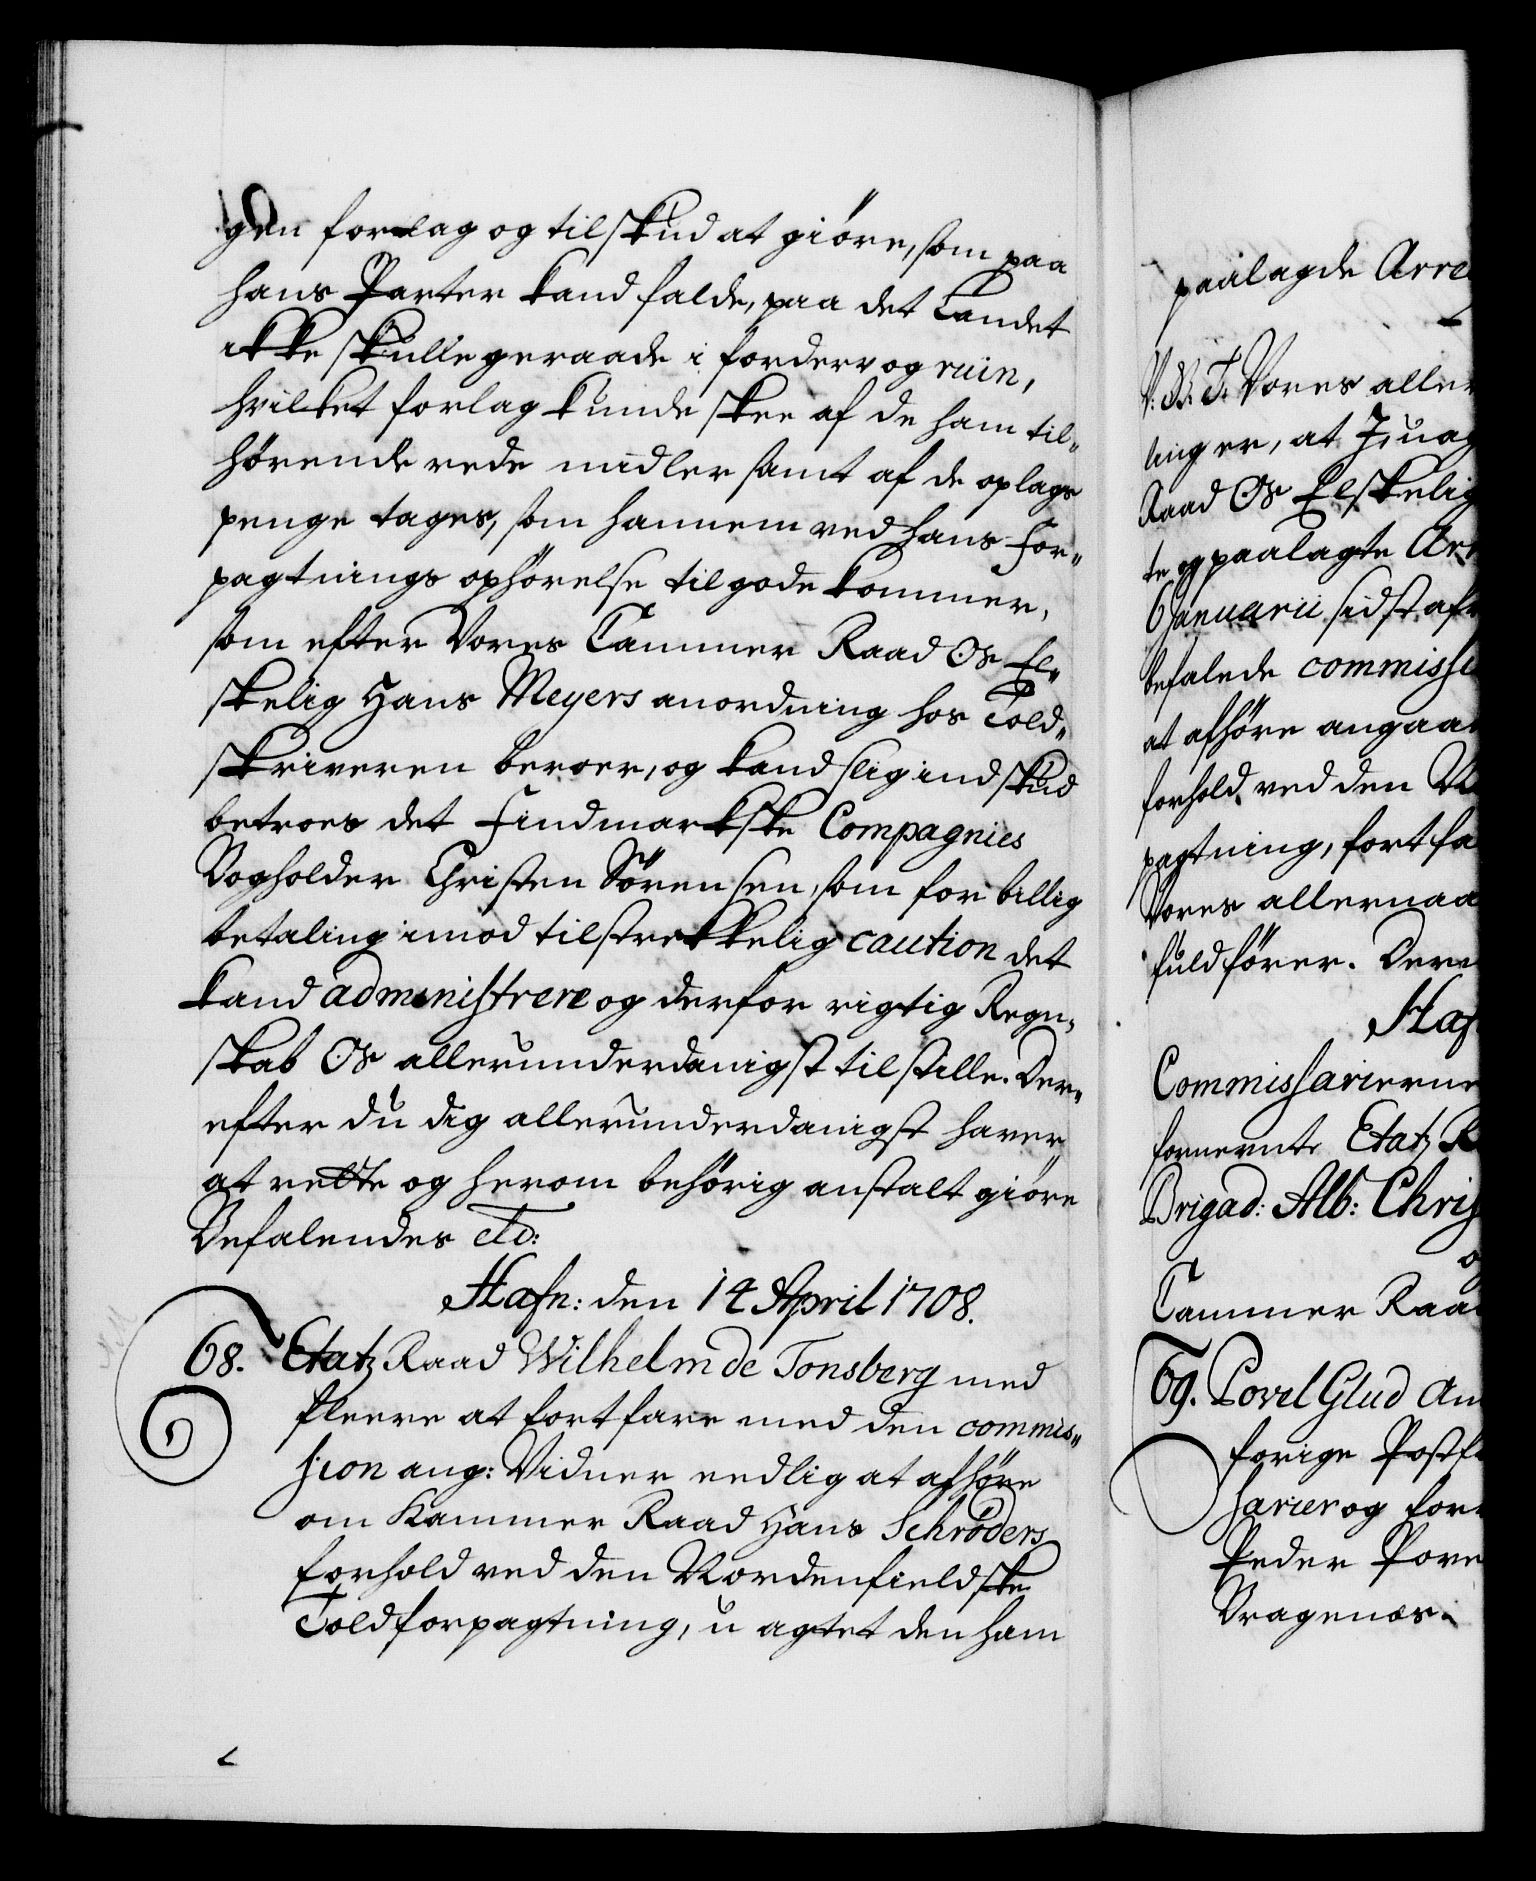 gen forlag og tilskud at giöre, som paa
hans Parter kand falde, paa det Landet
ikke skulle geraade i forderv og ruin,
hvilket forlag kunde skee af de ham til„
hørende rede midler samt af de oplags
penge tages, som hannem ved hans For„
pagtnings ophörelse tilgode kommer,
som efter Vores Cammer Raad Os El„
skelig Hans Meyers anordning hos Told„
skriveren beroer, og kand slig indskud
betroes det Findmarkske Compagnies
Bogholder Christen Sörensen, som for billig
betaling imod tilstrekkelig caution det
kand administrere og derfor rigtig Regn„
skab Os allerunderdanigst tilstille. Der„
efter du dig allerunderdanigst haver
at rette og herom behörig anstalt giöre
Befalendes etc:
Hafn: den 14 April 1708.
68. Etatz Raad Wilhelm de Tonsberg med
fleere at fortfare med den commis„
sion ang: Vidner eedlig at afhöre
om Kammer Raad Hans Schröders
forhold ved den Nordenfieldske
Toldforpagtning, u agtet den ham
paalagde Arre
V. G. T. Vores aller
ling er, at I, uag
Raad Os Elskelig
te og paalagte Arr
6 Januarii sidst af
befalede commissi
at afhöre angaa
forhold ved den N
pagtning, fortfa
Vores allernaa
fuldförer. Der
Haf
Commissarierne
fornevnte Etatz R
Brigad: Alb: Chris
og
Cammer Raa
69. Povel Glud An
forige Postf
sarier og for
Peder Pove
Bragenæs.